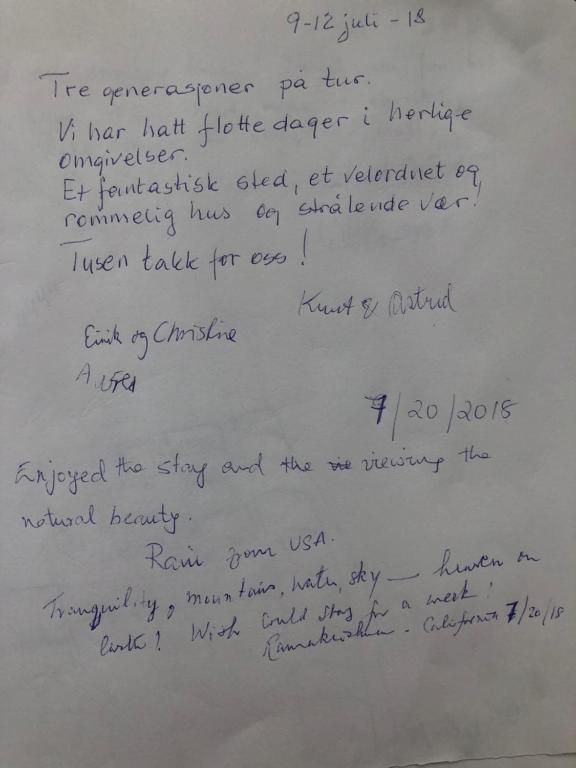 9-12 juli - 18
Tre generasjoner på tur.
Vi har hatt flotte dager i herlige
omgivelser.
Et fantastisk sted, et velordnet og
rommelig hus og strålende vær!
Tusen takk for oss!
Knut & Astrid
Eirik og Christine
7/20/2018
Enjoyed the stay and the viewing the
natural beauty.
from USA.
Tranquility, mountains, water, sky — heaven on
earth! Wish could stay for a week!
Ramakrishna - California 7/20/18